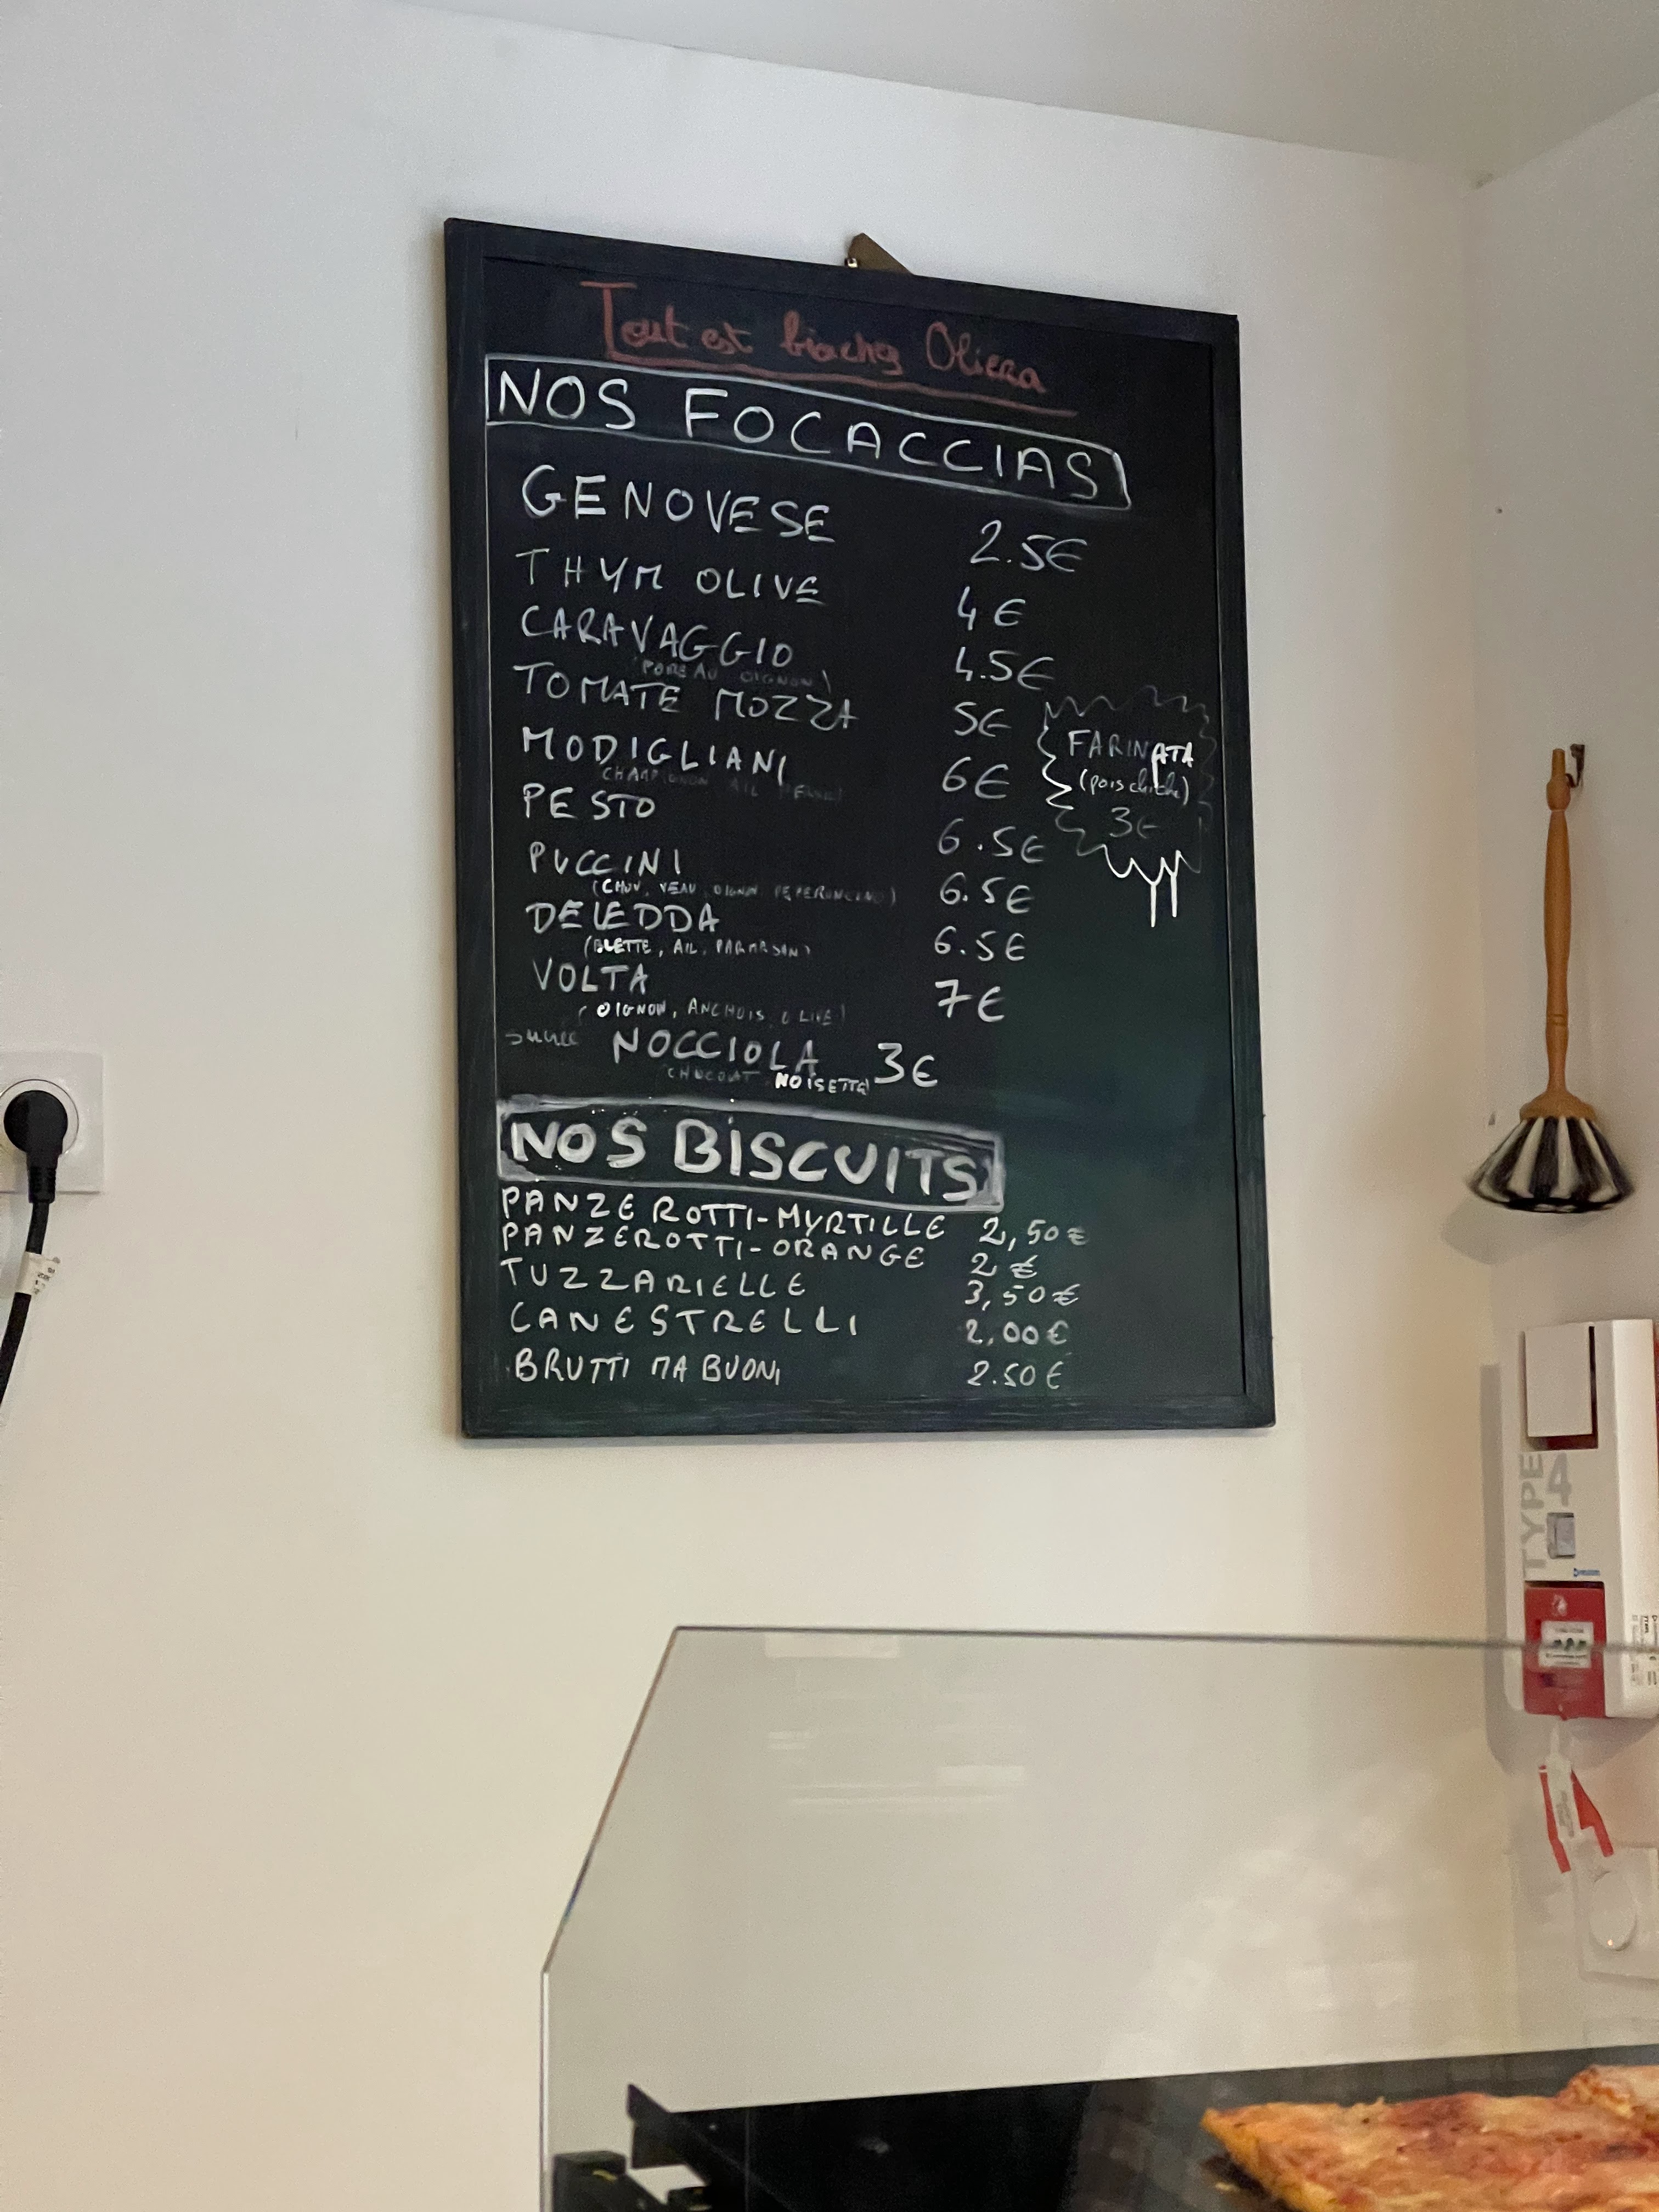 Tout est bio chez Oliera
NOS FOCACCIAS
GENOVESE 2.5€
THYM OLIVE 4€
CARAVAGGIO 4.5€
(POREAU OIGNON)
TOMATE MOZZA 5€
MODIGLIANI 6€
CHAMPIGNON AIL
PESTO 6.5€
PUCCINI 6.5€
(CHOU, VEAU, OIGNON PEPERONCINO)
DELEDDA 6.5€
(BLETTE, AIL, PARMESAN)
VOLTA 7€
(OIGNON, ANCHOIS, OLIVE)
NOCCIOLA 3€
CHOCOLAT NOISETTE
FARINATA
(pois chiche)
3€
NOS BISCUITS
PANZEROTTI-MYRTILLE 2,50€
PANZEROTTI-ORANGE 2€
TUZZARIELLE 3,50€
CANESTRELLI 2,00€
BRUTTI MA BUONI 2.50€
TYPE 4